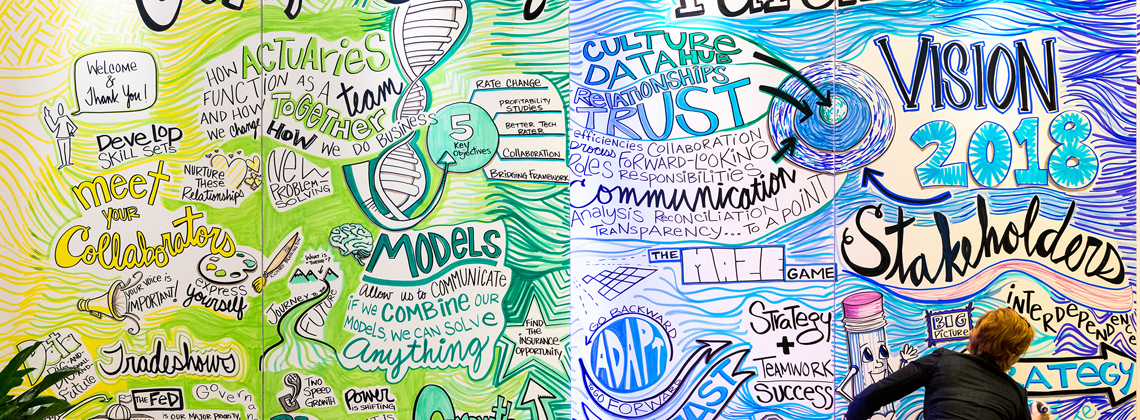 Welcome
&
Thank You!
Develop
Skill Sets
meet
your
Collaborators
Nurture
These
Relationships
New
Problem
Solving
Your voice is
important!
express
yourself
Tradeshows
Future
The Fed
is our major priority,
How Actuaries
function as a
team
and how
we change
Together
How we do business
5
Key
Objectives
Rate Change
Profitability
Studies
Better Tech
Rater
Collaboration
Bridging Framework
What is
there?
Journey
Future
Models
Allow us to communicate
if we combine our
models, we can solve
Anything
Find
the
insurance
opportunity
Two
Speed
Growth
Power
is shifting
Culture
Data Hub
Relationships
Trust
efficiencies collaboration
process forward-looking
roles responsibilities
Communication
Analysis Reconciliation
Transparency...to a point
The Maze Game
Go Backward
Adapt
to go Forward
Fast
Strategy
+
Teamwork
Success
Vision
2018
Stakeholders
Big
Picture